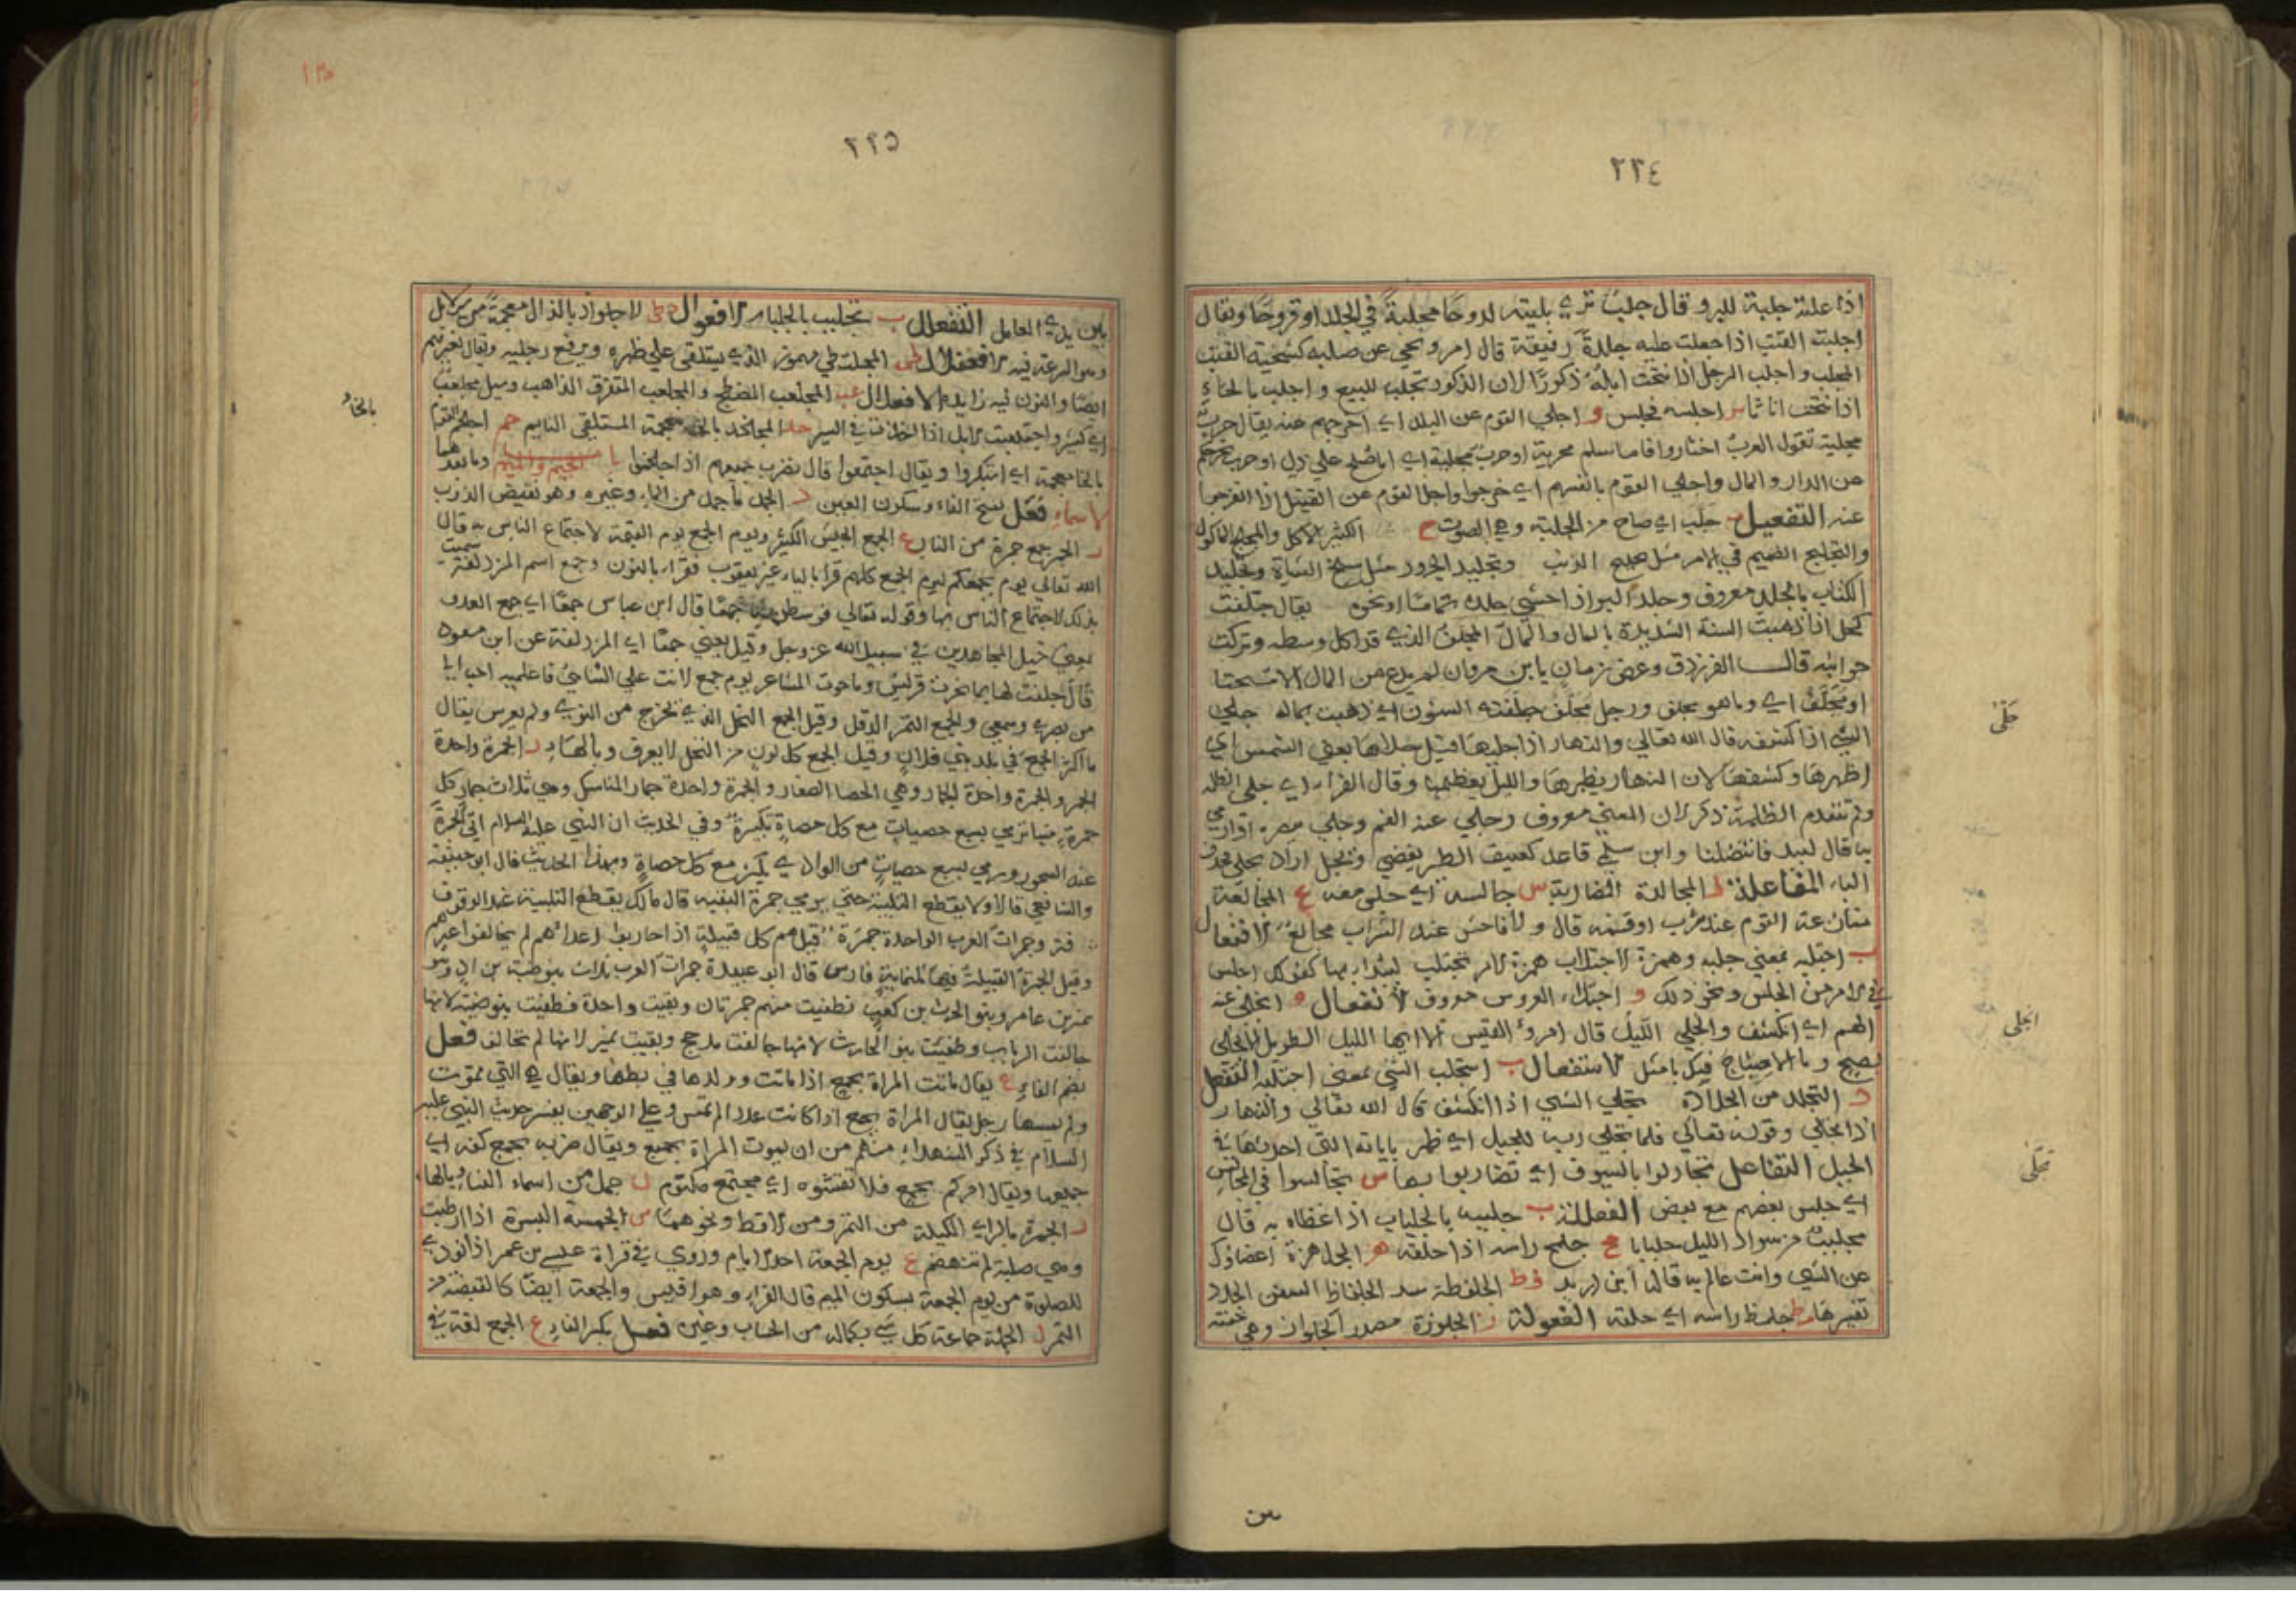 ٢٢٤
اذا علته جلبة للبرو قال جلبت تري بليته لدوحا مجلبة في الجلد او قروحا ويقال
اجلبت القتب اذا جعلت عليه جلدة رقيقة قال امرو يحي عن صلبه كتنحية القتب
المجلب و اجلب الرجل اذا نتجت ابله ذكورًا لان الذكور تجلب للبيع و اجلب بالحاء
اذا نتجت اناثا س اجلسه فجلس و اجلي القوم عن البلد اي اخرجهم عنه يقال حرب
مجلية تقول العرب اختاروا فاما سلم مخزية او حرب مجلية اي اما صلح علي ذل او حرب تخرجكم
من الدار و المال واجلي القوم بانفسهم اي خرجوا واجل القوم عن القتيل اذا انفرجوا
عنه التفعيل ب جلب اي صاح من الجلبة وهي الصوت ح الكثير الاكل والمجلح الماكول
والتجليح التصميم في الامر مثل تجليح الذئب وتجليد الجزور مثل سلخ الشاة وتجليد
الكتاب بالجلد معروف وجلد البو اذا حشي جلده ثماما او نحوه يقال جلفت
كحل اذا ذهبت السنة الشديدة بالمال والمال المجلف الذي قد اكل وسطه وتركت
جوانبه قال الفرزدق وعض زمان يا ابن مروان لم يدع من المال الا مسحتا
او مجلف اي وما هو مجلف ورجل مجلف جلفته السنون اي ذهبت بماله جلي
الشي اذا كشفه قال الله تعالي والنهار اذا جليها قيل جلاها يعني الشمس اي
اظهرها و كشفها لان النهار يظهرها والليل يغطيها و قال الفراء اي جلي الظلمة
ولم تتقدم الظلمة ذكر لان المعني معروف وجلي عنه الغم وجلي ببصره اذا رمي
به قال لبيد فانتضلنا وابن سلمي قاعد كعتيق الطير يغضي ويجل اراد يجلي فحذف
الياء المفاعلة د المجالدة المضاربة س جالسه اي جلس معه ع المجالعة
منازعة القوم عند شرب او قسمة قال و لا فاحش عند الشراب مجالع الافتعال
ب اجتلبه بمعني جلبه وهمزة الاجتلاب همزة الامر تجتلب ليبتدا بها كقولك اجلس
في الامر من الجلس ونحو ذلك و اجتلاء العروس معروف الانفعال و انجلي عنه
الهم اي انكشف وانجلي الليل قال امرؤ القيس الا ايها الليل الطويل الا انجلي
بصبح و ما الاصباح فيك بامثل الاستفعال ب استجلب الشي بمعني اجتلبه التفعل
د التجلد من الجلادة تجلي الشي اذا انكشف قال الله تعالي والنهار
اذا تجلي وقوله تعالي فلما تجلي ربه للجبل اي ظهر باياته التي احدثها في
الجبل التفاعل تجادلوا بالسيوف اي تضاربوا بها س تجالسوا في المجالس
اي جلس بعضهم مع بعض الفعللة ب جلببه بالجلباب اذا غطاه به قال
مجلبب من سواد الليل جلبابا ح جلمح راسه اذا حلقه هز الجلهزة اغضاؤك
عن الشي وانت عالم به قاله ابن دريد فط الجلفطة سد الجلفاظ السفن الجدد
تقييرها مط جلمط راسه اي حلقه الفعولة ز الجلوزة مصدر الجلواز وهي خفته
جَلّى
انجلى
تجلّى
بين
٢٢٥
بين يدي العامل التفعلل ب تجلبب بالجلباب الافعوال ذ الاجلواذ بالذال معجمة من سير الابل
وهو السرعة فيه الافعنلال المجلنطي مهموز الذي يستلقي علي ظهره ويرفع رجليه ويقال بغير همز
ايضا والنون فيه زايدة الافعلال عب المجلعب المضطجع والمجلعب المتفرق الذاهب وسيل مجلعب
اي كثير واجلعبت الابل اذا جدت في السير خد المجلخد بالخاء معجمة المستلقي النايم خم اجلخم القوم
بالخاء معجمة اي استكبروا ويقال اجتمعوا قال نضرب جمعيهم اذا اجلخموا با الجيم والميم وما بعدهما
الاسماء فعل بفتح الفاء وسكون العين د الجمد ما جمد من الماء وغيره وهو نقيض الذوب
ر الجمر جمع جمرة من النار ع الجمع الجيش الكثير ويوم الجمع يوم القيمة لاجتماع الناس به قال
الله تعالي يوم يجمعكم ليوم الجمع كلهم قرا بالياء غير يعقوب فقراء بالنون وجمع اسم المزدلفة سميت
بذلك لاجتماع الناس بها وقوله تعالي فوسطن به جمعًا قال ابن عباس جمعًا اي جمع العدو
يعني خيل المجاهدين في سبيل الله عز وجل وقيل يعني جمعًا اي المزدلفة عن ابن مسعود
قال حلفت لها بما نحرت قريش وما حوت المشاعر يوم جمع لانت علي التنائي فاعلميه احب الي
من بصري وسمعي والجمع التمر الدقل وقيل الجمع النخل الذي يخرج من النوي ولم يغرس يقال
ما اكثر الجمع في بلد بني فلان وقيل الجمع كل لون من النخل لا يعرف وبالهاء ر الجمرة واحدة
الجمر والجمرة واحدة الجمار وهي الحصا الصغار والجمرة واحدة جمار المناسك وهي ثلاث جمار كل
جمرة منها ترمي بسبع حصيات مع كل حصاة تكبيرة وفي الحديث ان النبي عليه السلام اتي الجمرة
عند السحور ورمي بسبع حصيات من الوادي يكبر مع كل حصاة وبهذا الحديث قال ابو حنيفة
والشافعي قالا ولا يقطع التلبية حتي يرمي جمرة العقبة قال مالك يقطع التلبية عند الوقوف
وجمرات العرب الواحدة جمرة قيل هم كل قبيلة اذا حاربوا اعداءهم لم يحالفوا غيرهم
وقيل الجمرة القبيلة فيها ثلثماية فارس قال ابو عبيدة جمرات العرب ثلاث بنو ضبة بن اد وبنو
نمير بن عامر وبنو الحرث بن كعب فطفيت منهم جمرتان وبقيت واحدة فطفيت بنو ضبة لانها
حالفت الرباب وطفئت بنو الحارث لانها حالفت مذحج وبقيت نمير لانها لم تحالف فعل
بضم الفاء ع يقال ماتت المراة بجمع اذا ماتت وولدها في بطنها ويقال هي التي تموت
ولم يمسها رجل يقال المراة بجمع اذا كانت عذراء لم تمس وعلي الوجهين يفسر حديث النبي عليه
السلام في ذكر الشهداء منهم من ان تموت المراة بجمع ويقال ضربه بجمع كفه اي
جميعها ويقال امركم بجمع فلا تفشوه اي مجتمع مكتوم ل جمل من اسماء النساء وبالهاء
ز الجمزة بالزاي الكتلة من التمر ومن الاقط ونحوهما س الجمسة البسرة اذا ارطبت
وهي صلبة لم تنهضم ع يوم الجمعة احد الايام وروي في قراة عيسي بن عمر اذا نودي
للصلوة من يوم الجمعة بسكون الميم قال الفراء وهو اقيس والجمعة ايضًا كالقبضة من
التمر ل الجملة جماعة كل شي بكماله من الحساب وغيره فعل بكسر الفاء ع الجمع لغة في
بالخاء